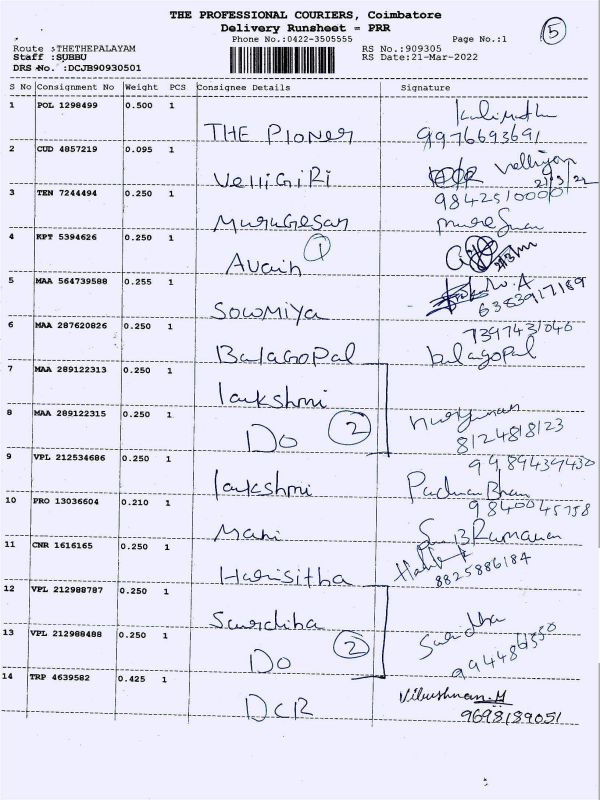 THE PROFESSIONAL COURIERS, Coimbatore
Delivery Runsheet = PRR
5
Phone No.:0422-3505555
Page No.:1
Route :THETHEPALAYAM
RS No.:909305
Staff :SUBBU
RS Date:21-Mar-2022
DRS No. :DCJB90930501
S No Consignment No Weight PCS Consignee Details Signature
1 POL 1298499 0.500 1
THE PIONER 9976693691
2 CUD 4857219 0.095 1
VelliGiRi
9842510000
3 TEN 7244494 0.250 1
MURUGESAN
4 KPT 5394626 0.250 1
1
5 MAA 564739588 0.255 1
SOWMIYA 6383917189
6 MAA 287620826 0.250 1
7397431046
BalaGOPAL balagopal
7 MAA 289122313 0.250 1
lakshmi
8 MAA 289122315 0.250 1
Do 2 8124818123
9 VPL 212534686 0.250 1
9489439430
lakshmi
10 PRO 13036604 0.210 1
9840045758
Mani
11 CNR 1616165 0.250 1
Harisitha 8825886184
12 VPL 212988787 0.250 1
13 VPL 212988488 0.250 1
Do 2
14 TRP 4639582 0.425 1
DCR 9698189051